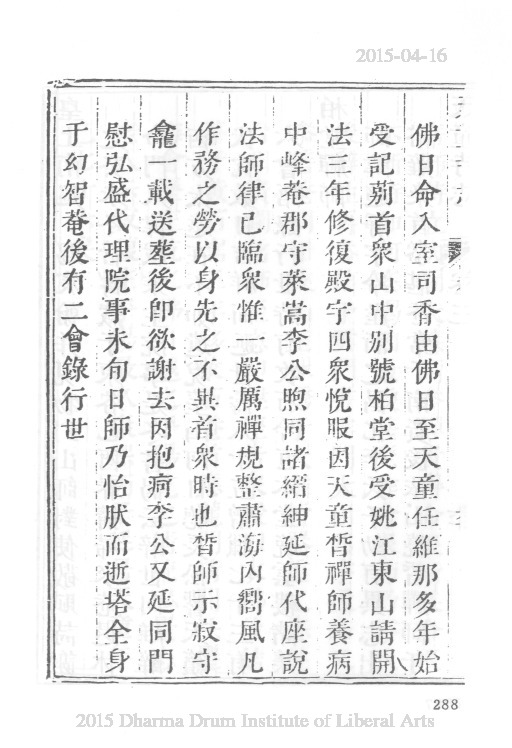 2015-04-16
佛日命入室司香由佛日至天童任維那多年始
受記莂首衆山中別號柏堂後受姚江東山請開
法三年修復殿宇四衆悅服因天童晳禪師養病
中峰菴郡守萊嵩李公煦同諸縉紳延師代座說
法師律己臨衆惟一嚴厲禪規整肅海內嚮風凡
作務之勞以身先之不異首衆時也晳師示寂守
龕一載送塟後卽欲謝去因抱疴李公又延同門
慰弘盛代理院事未旬日師乃怡然而逝塔全身
于幻智菴後有二會錄行世
288
2015 Dharma Drum Institute of Liberal Arts